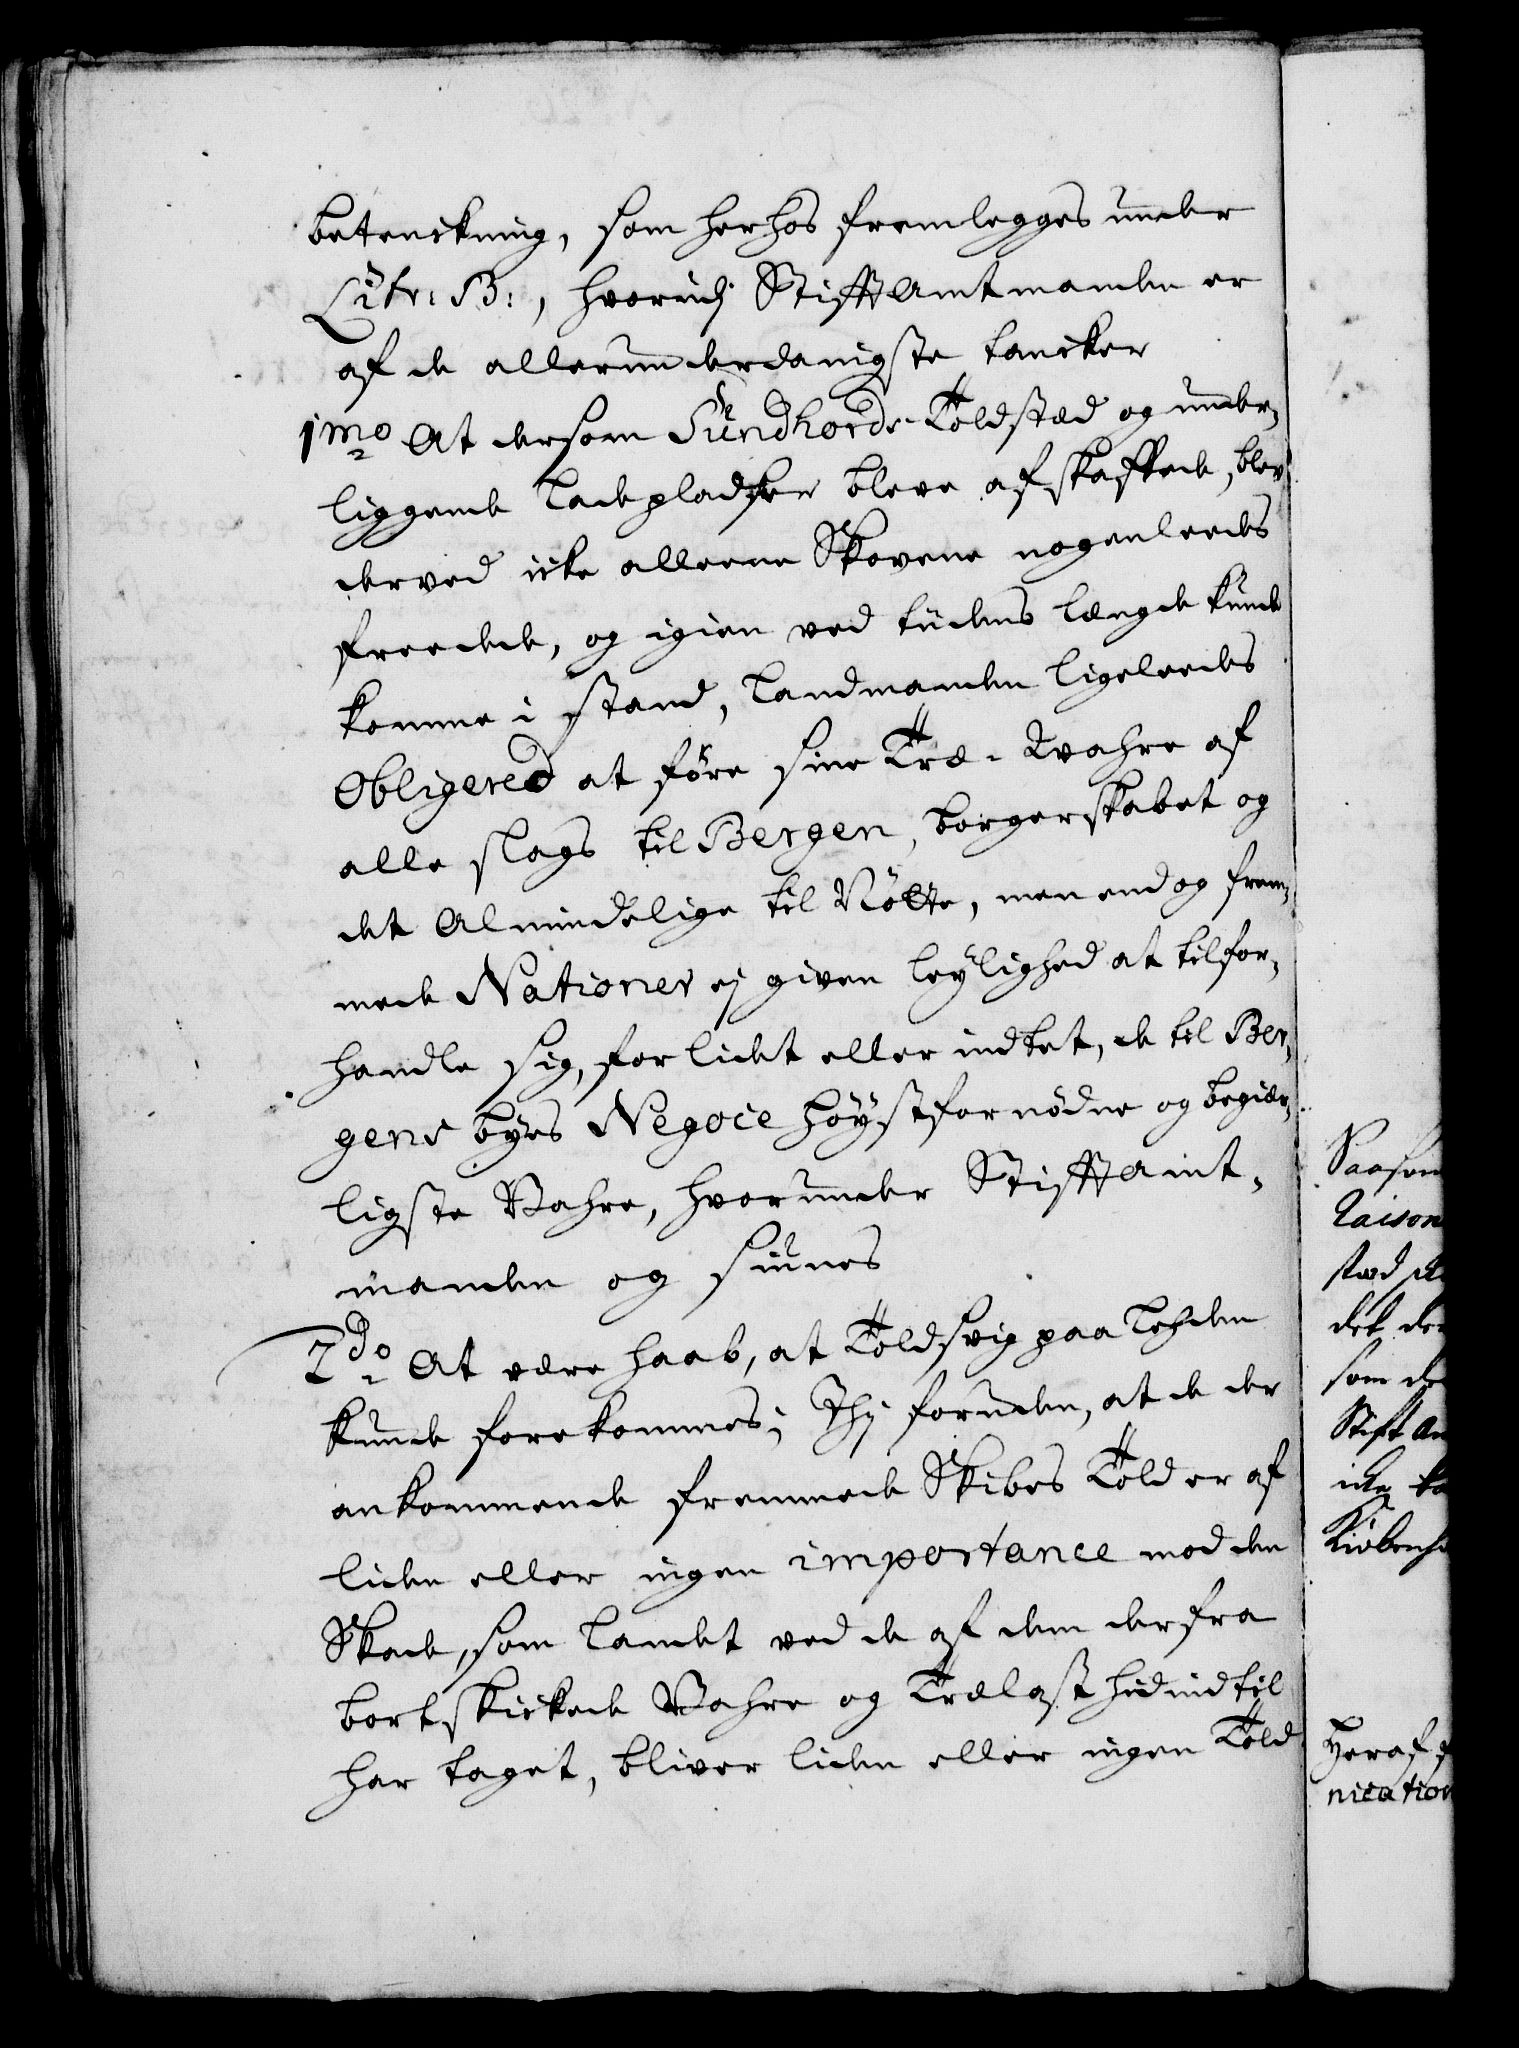 betenckning, som herhos fremlegges under
Litr: B:, hvorudj StifftAmtmanden er
af de allerunderdanigste tancker
1mo At dersom Sundhords Toldsted og under-
liggende Ladepladser bleve afskaffede, blev
derved icke alleene Skovene nogenleedes
freedede, og igien ved tiidens længde kunde
komme i stand, Landmanden ligeleedes
Obligered at före sine Træ-Wahre af
alle slags til Bergen, borgerskabet og
det Almindelige til Nötte, men endog frem-
mede Nationer ej given leylighed at tilfor-
handle sig, for lidet eller indtet, de til Ber-
gens byes Negoce höystfornödne og begier-
ligste Vahre, hvorunder StifftAmt-
manden og siunes
2do At være haab, at Toldsvig paa Lehden
kunde forekommes; Thj foruden, at de der
ankommende fremmede Skibes Told er af
liden eller ingen importance mod den
Skade, som Landet ved de af dem derfra
bortskickede Vahre og Trælast hidindtil
har taget, bliver liden eller ingen Told
Saasom
Raison
sted
det
som
Stift Am
icke
Kiöbenh
Heraf
nication